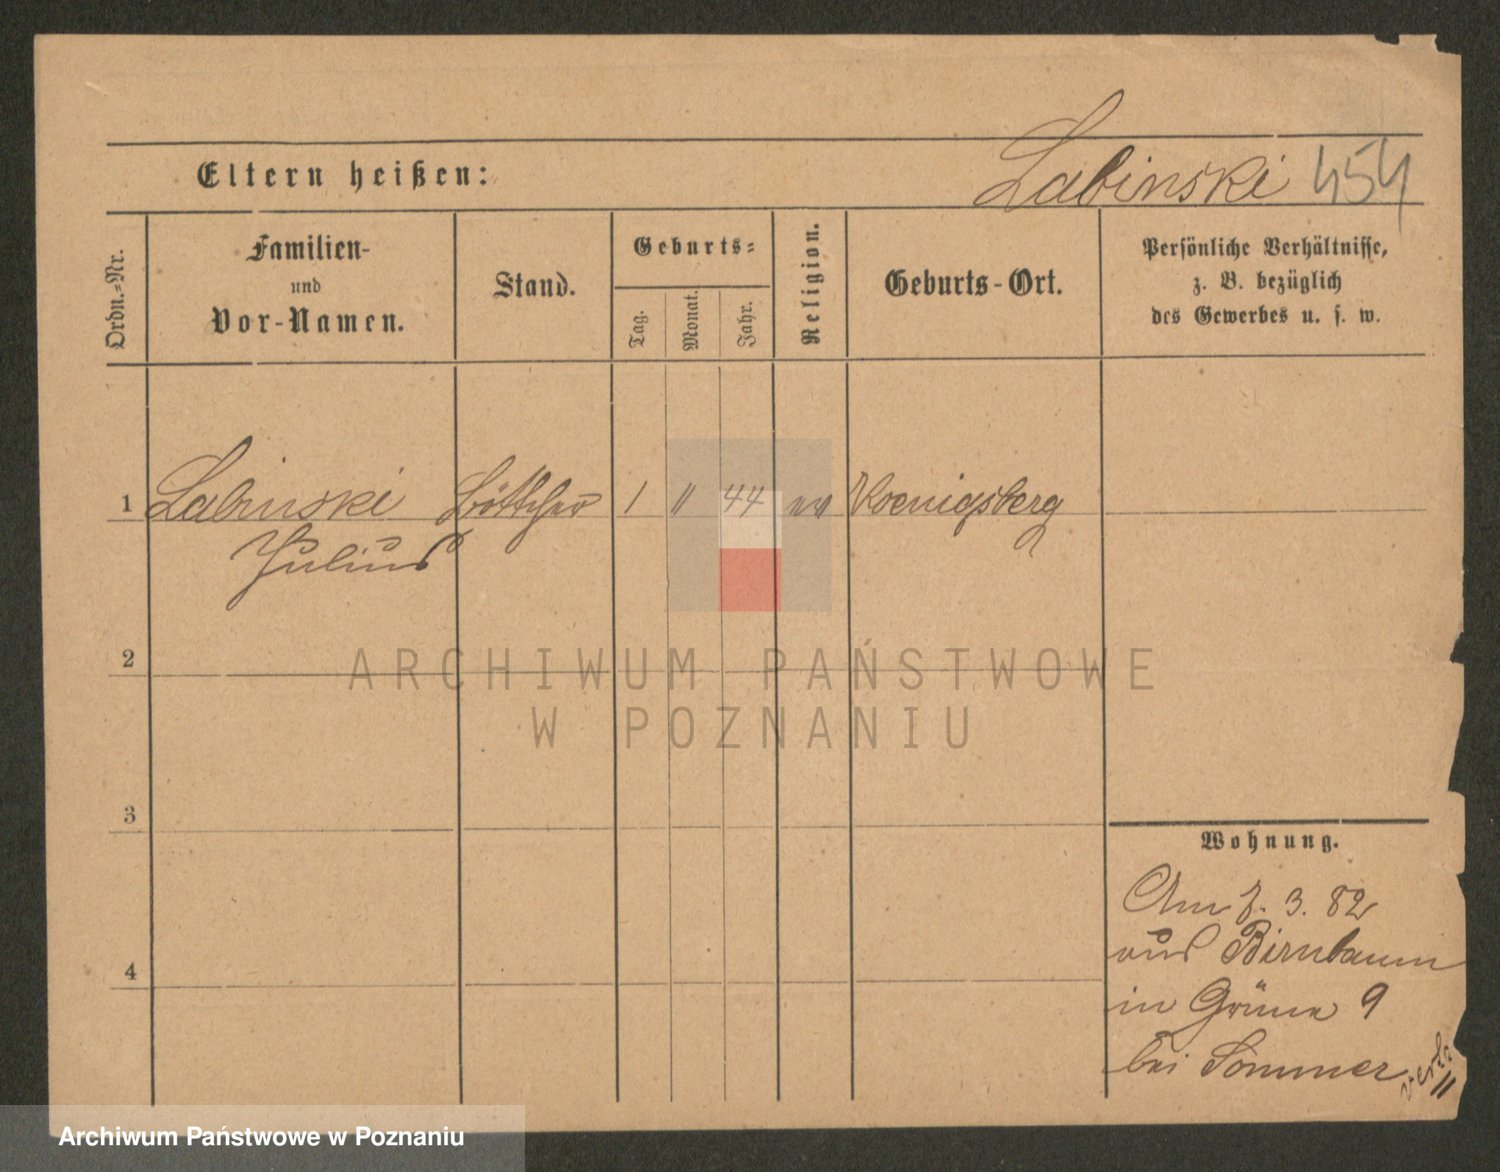 Labinski 454
Eltern heißen:
Ordn.-Nr.
Familien-
und
Vor-Namen.
Stand.
Geburts-
Tag.
Monat.
Jahr.
Religion.
Geburts-Ort.
Persönliche Verhältnisse,
z. B. bezüglich
des Gewerbes u. s. w.
1 Labinski Böttcher 1 11 44 ev Koenigsberg
Julius
2
ARCHIWUM PAŃSTWOWE
W POZNANIU
3
Wohnung.
Am 7. 3. 82
aus Birnbaum
in Grüne 9
bei Sommer
4
Archiwum Państwowe w Poznaniu